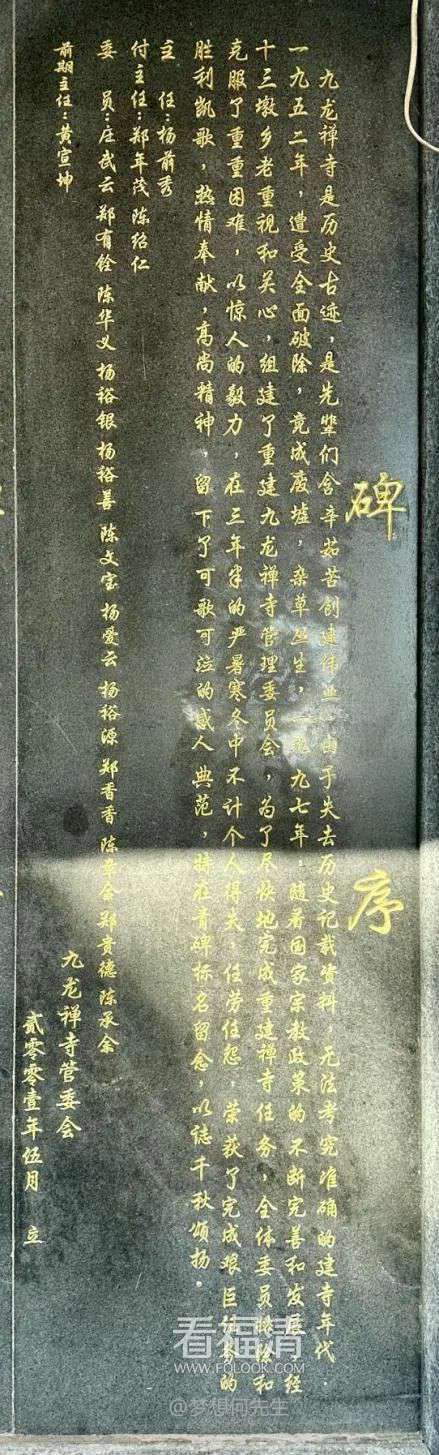 碑序
九龙禅寺是历史古迹，是先辈们含辛茹苦创建伟业，由于失去历史记载资料，无法考究准确的建寺年代．
一九五二年，遭受全面破除，竟成废墟，杂草丛生，一九九七年，随着国家宗教政策的不断完善和发展，经
十三墩乡老重视和关心，组建了重建九龙禅寺管理委员会，为了尽快地完成重建禅寺任务，全体委员
克服了重重困难，以惊人的毅力，在三年半的严暑寒冬中不计个人得失，任劳任怨，荣获了完成艰巨任务的
胜利凯歌，热情奉献，高尚精神，留下了可歌可泣的感人典范，特在青碑标名留念，以誌千秋颂扬．
主　任：杨前秀
付主任：郑年茂 陈绍仁
委　员：庄武云 郑有铨 陈华义 杨裕银 杨裕善 陈文宝 杨爱云 杨裕源 郑香香 陈 金 郑贵德 陈承金
前期主任：黄宣坤
九龙禅寺管委会
贰零零壹年伍月　立
看福清
WWW.FQLOOK.COM
@梦想何先生